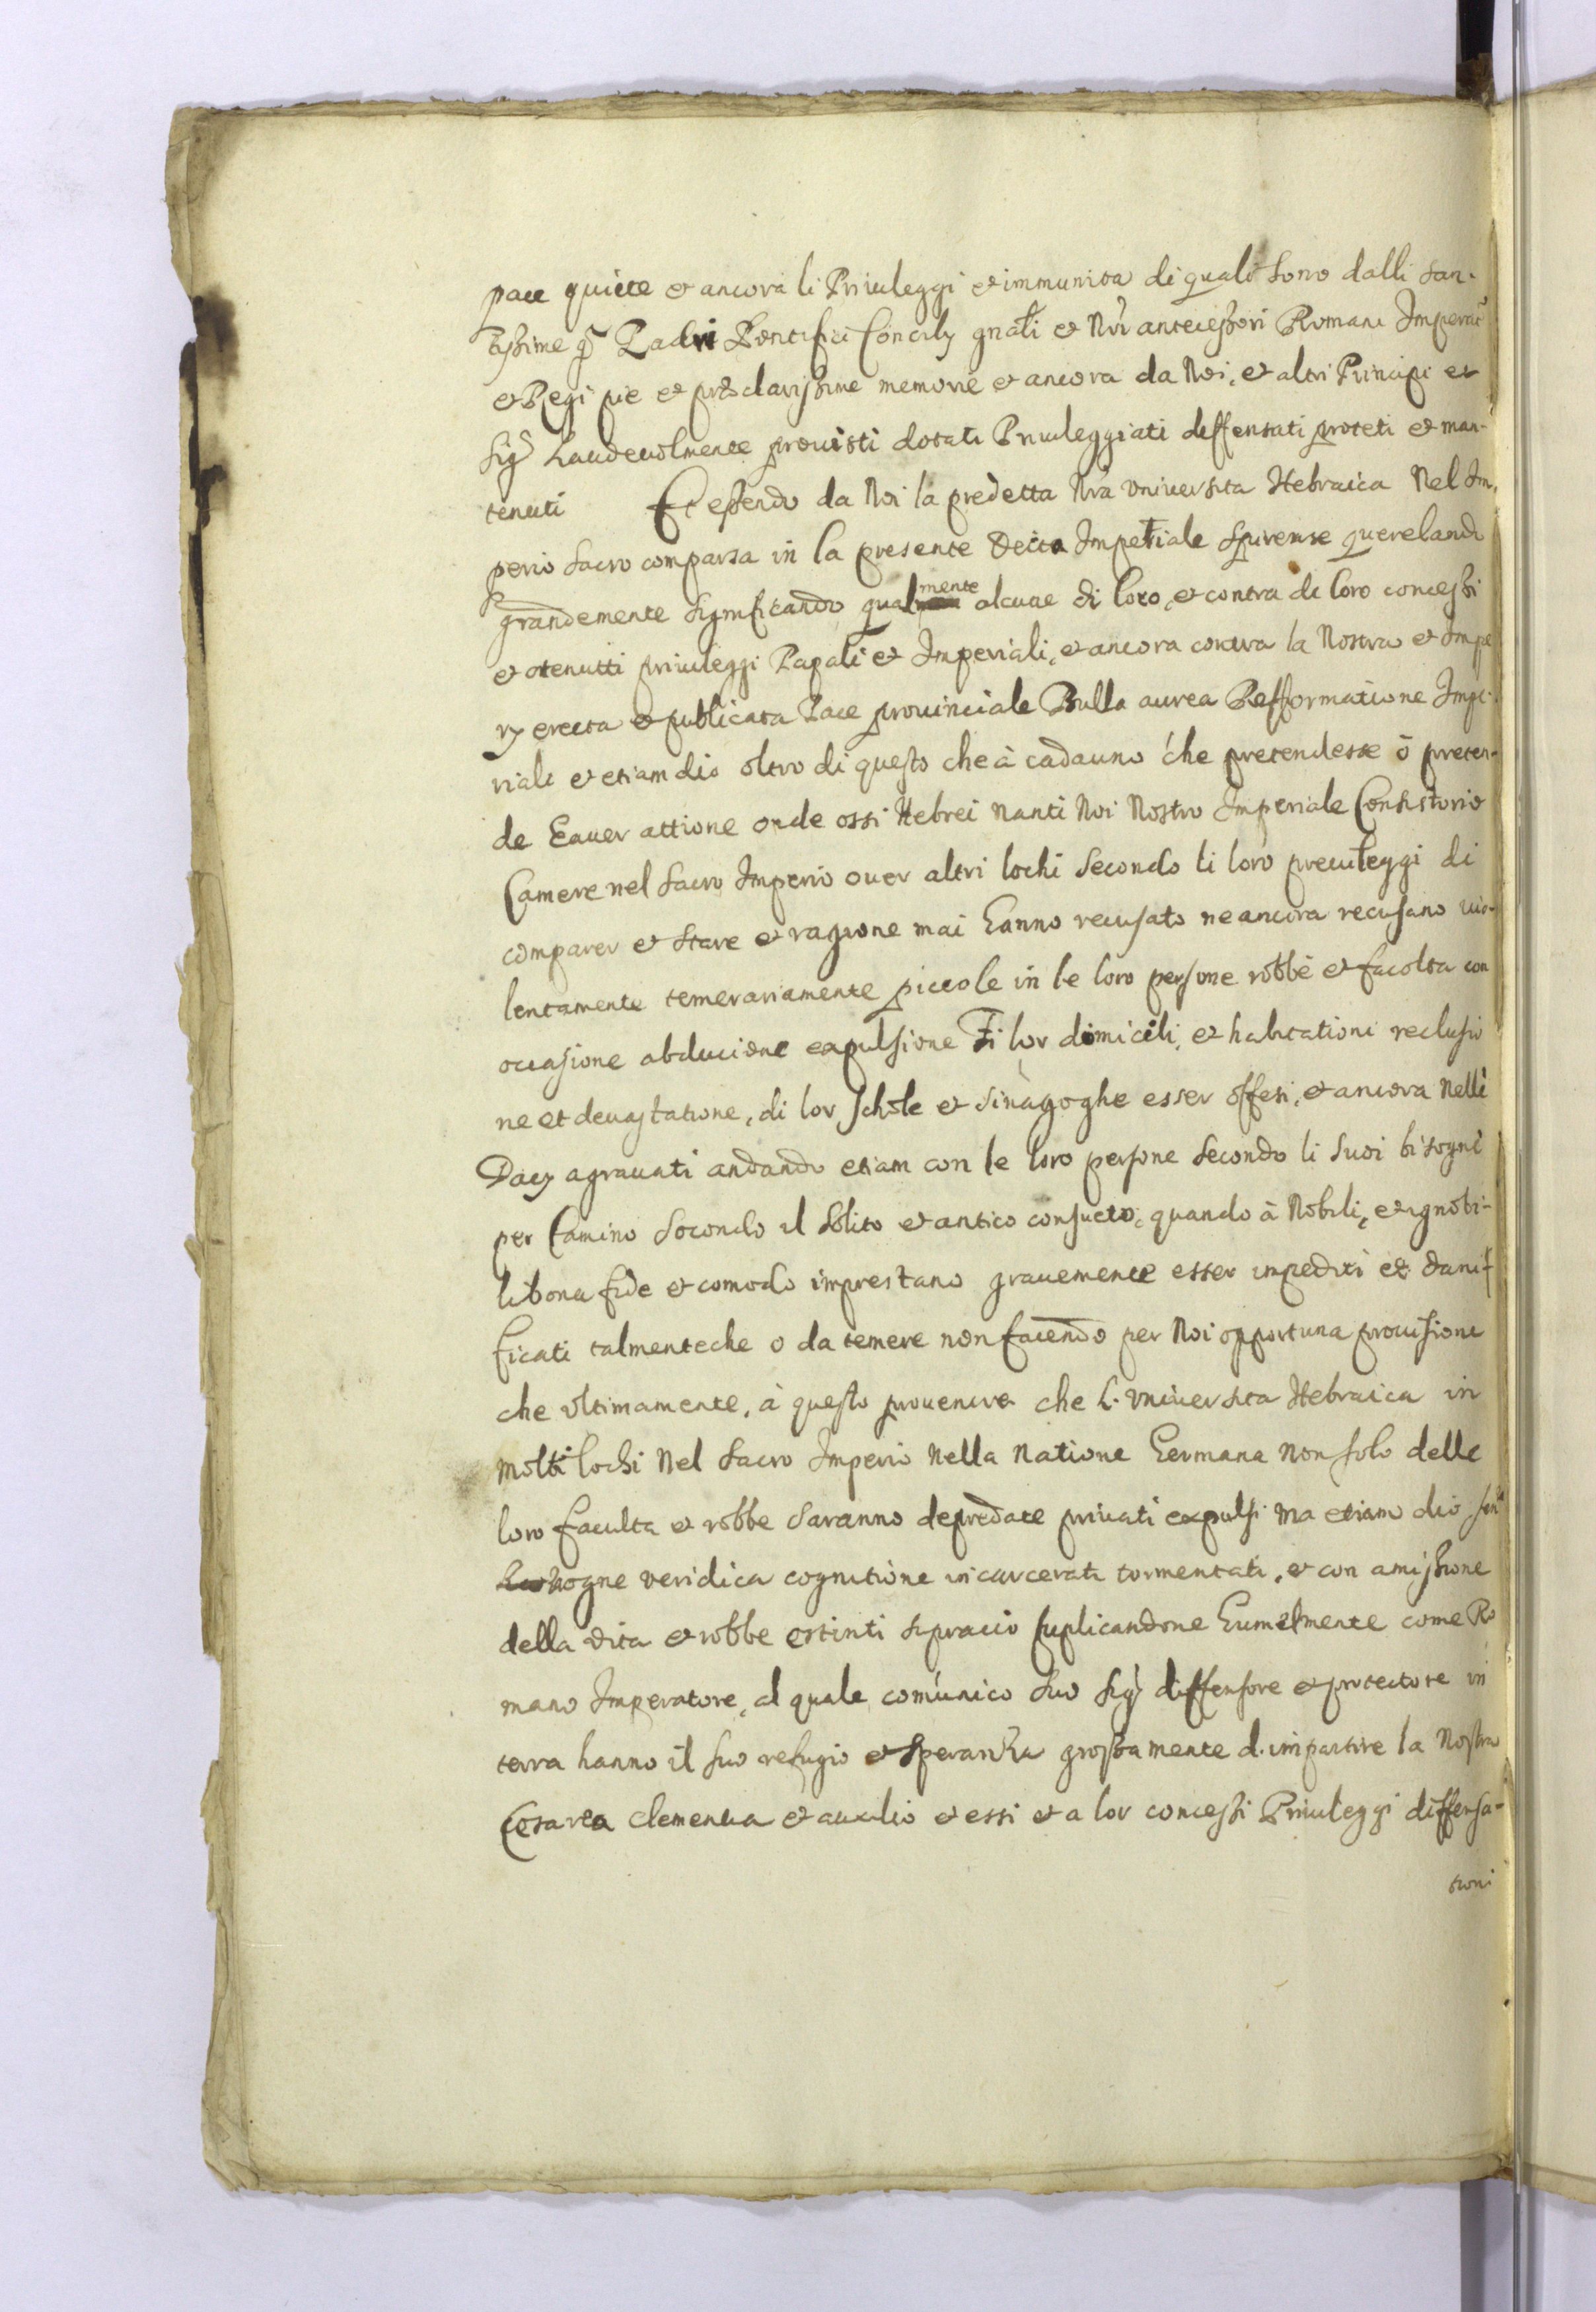 pace quiete et ancora li Priuileggi et immunita di quali sono dalli san-
tissime Padri Pontifici Concilij gnali et Nri antecessori Romani Imperat
et Regi pie et preclarissime memorie et ancora da Noi, et altri Principi et
Sig Laudeuolmente prouisti dotati Priuileggiati deffensati proteti et man-
tenuti Et essendo da Noi la predetta Nra Vniuersita Hebraica Nel Im-
perio sacro comparsa in la presente Deieta Imperiale Spirense querelando
grandemente significando qualmente alcune di loro, et contra de loro concessi
et otenutti priuileggi Papali et Imperiali, et ancora contra la Nostra et Impe
rij erecta et publicata Pace prouinciale Bulla aurea Refformatione Impe-
riale et etiam dio oltro di questo che à cadauno che pretendesse ò preten-
de Hauer attione onde ossi Hebrei nanti Noi Nostro Imperiale Consistorio
Camere nel sacro Imperio ouer altri lochi secondo li loro preuileggi di
comparer et stare et ragione mai Hanno recusato ne ancora recusano uio-
lentamente temerariamente piccole in le loro persone robbe et facolta con
occasione abducione expulsione di lor domicili, et habitationi reclusio
ne et deuastatione, di lor schole et sinagoghe esser offesi, et ancora Nelli
Dacij agrauati andando etiam con le loro persone secondo li suoi bisogni
per Camino Socondo il Solito et antico consueto, quando à Nobili, et ignobi-
li bona fide et comodo imprestano grauemente esser impediti et danif
ficati talmenteche o da temere non facendo per Noi opportuna prouisione
che Vltimamente, à questo prouenire che l. Vniuersita Hebraica in
molti lochi Nel Sacro Imperio Nella Natione Germana Non solo delle
loro faculta et robbe saranno depredate priuati expulsi ma etiam dio sen
ogne veridica cognitione incarcerati tormentati, et con amissione
della vita et robbe estinti sipracio suplicandone Humelmente come Ro
mano Imperatore, al quale com'unico suo Sig diffensore et protectore in
terra hanno il suo refugio et Speranza grossamente d. impartire la Nostra
Cesarea clementia et auxilio et essi et a lor concessi Priuileggi diffensa-
tioni